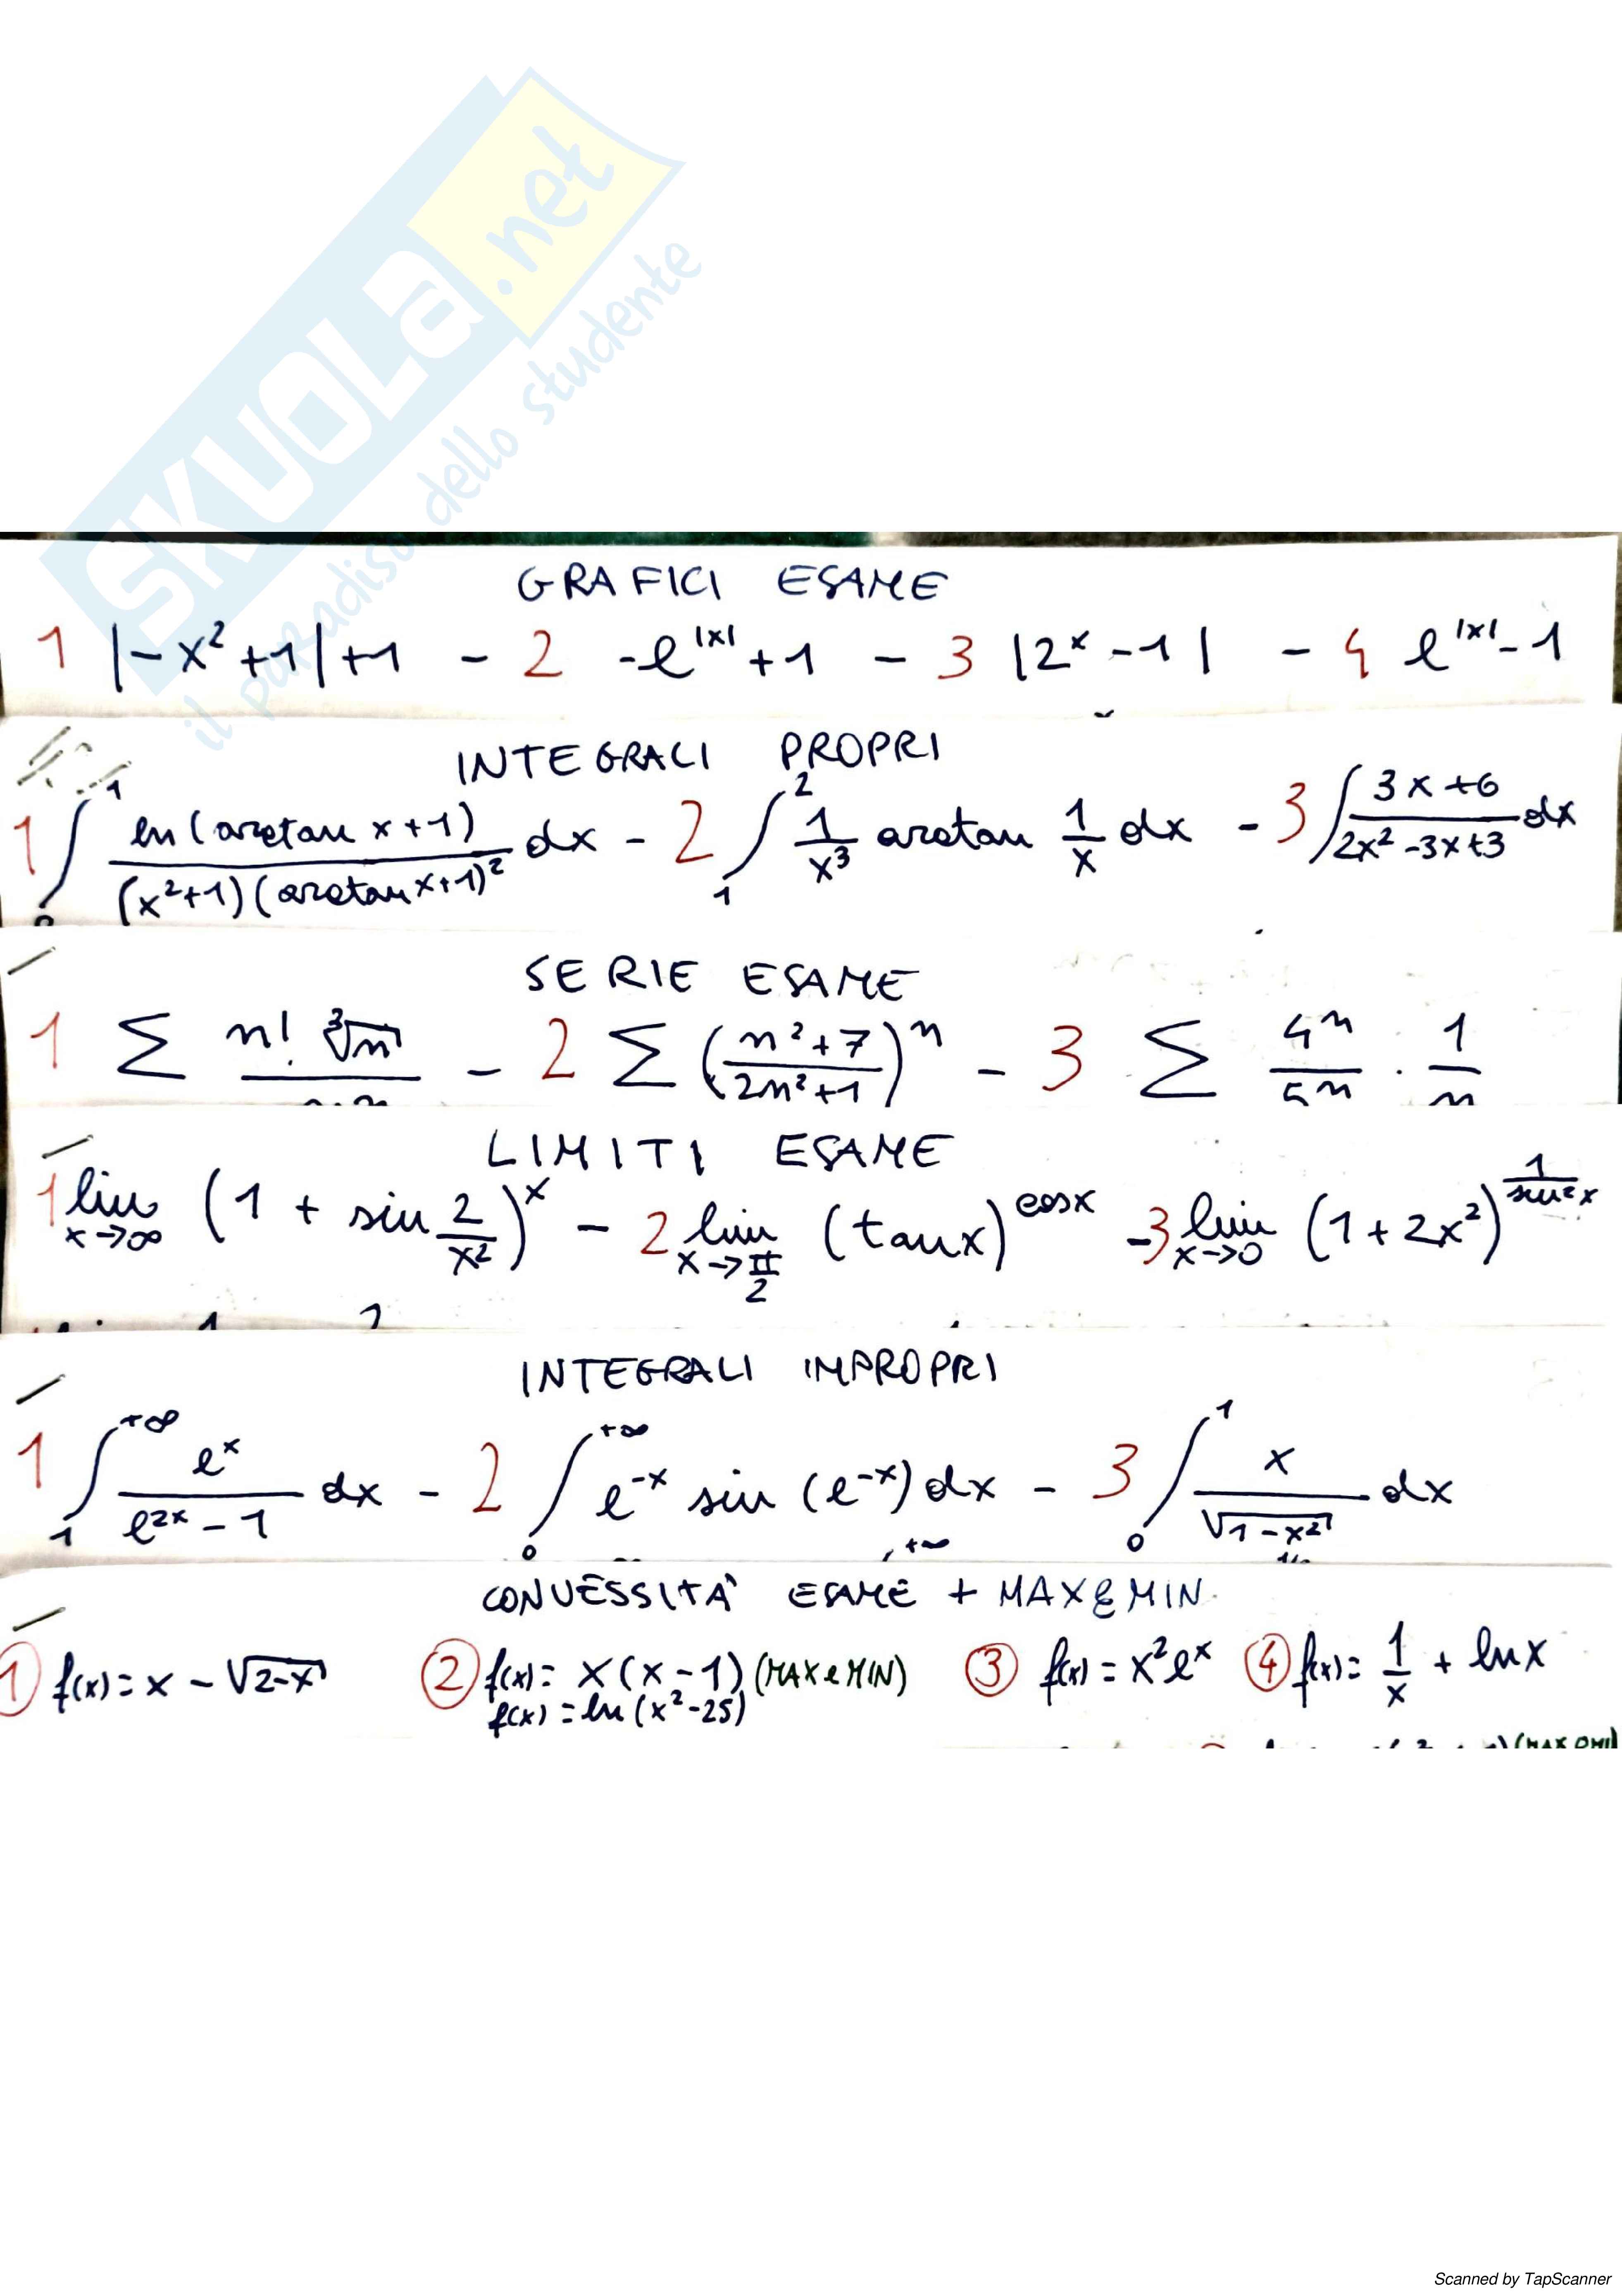 SKUOLA.net
il paradiso dello studente
GRAFICI ESAME
1 |-x²+1|+1 - 2 -e^|x|+1 - 3 |2^x-1| - 4 e^|x|-1
INTEGRALI PROPRI
1 ∫₀¹ ln(arctan x+1)/((x²+1)(arctan x+1)²) dx - 2 ∫₁² 1/x³ arctan 1/x dx - 3 ∫ (3x+6)/(2x²-3x+3) dx
SERIE ESAME
1 Σ n! ∛n - 2 Σ ((n²+7)/(2n²+1))^n - 3 Σ 4^n/5^n · 1/n
LIMITI ESAME
1 lim x→∞ (1 + sin 2/x²)^x - 2 lim x→π/2 (tan x)^cos x - 3 lim x→0 (1+2x²)^(1/sin²x)
INTEGRALI IMPROPRI
1 ∫₁^+∞ e^x/(e^2x-1) dx - 2 ∫₀^+∞ e^-x sin(e^-x) dx - 3 ∫₀¹ x/√(1-x²) dx
CONVESSITÀ ESAME + MAX & MIN
① f(x)= x-√(2-x) ② f(x)= x(x-1) (MAX e MIN) ③ f(x)= x²e^x ④ f(x)= 1/x + ln x
f(x) = ln(x²-25)
Scanned by TapScanner